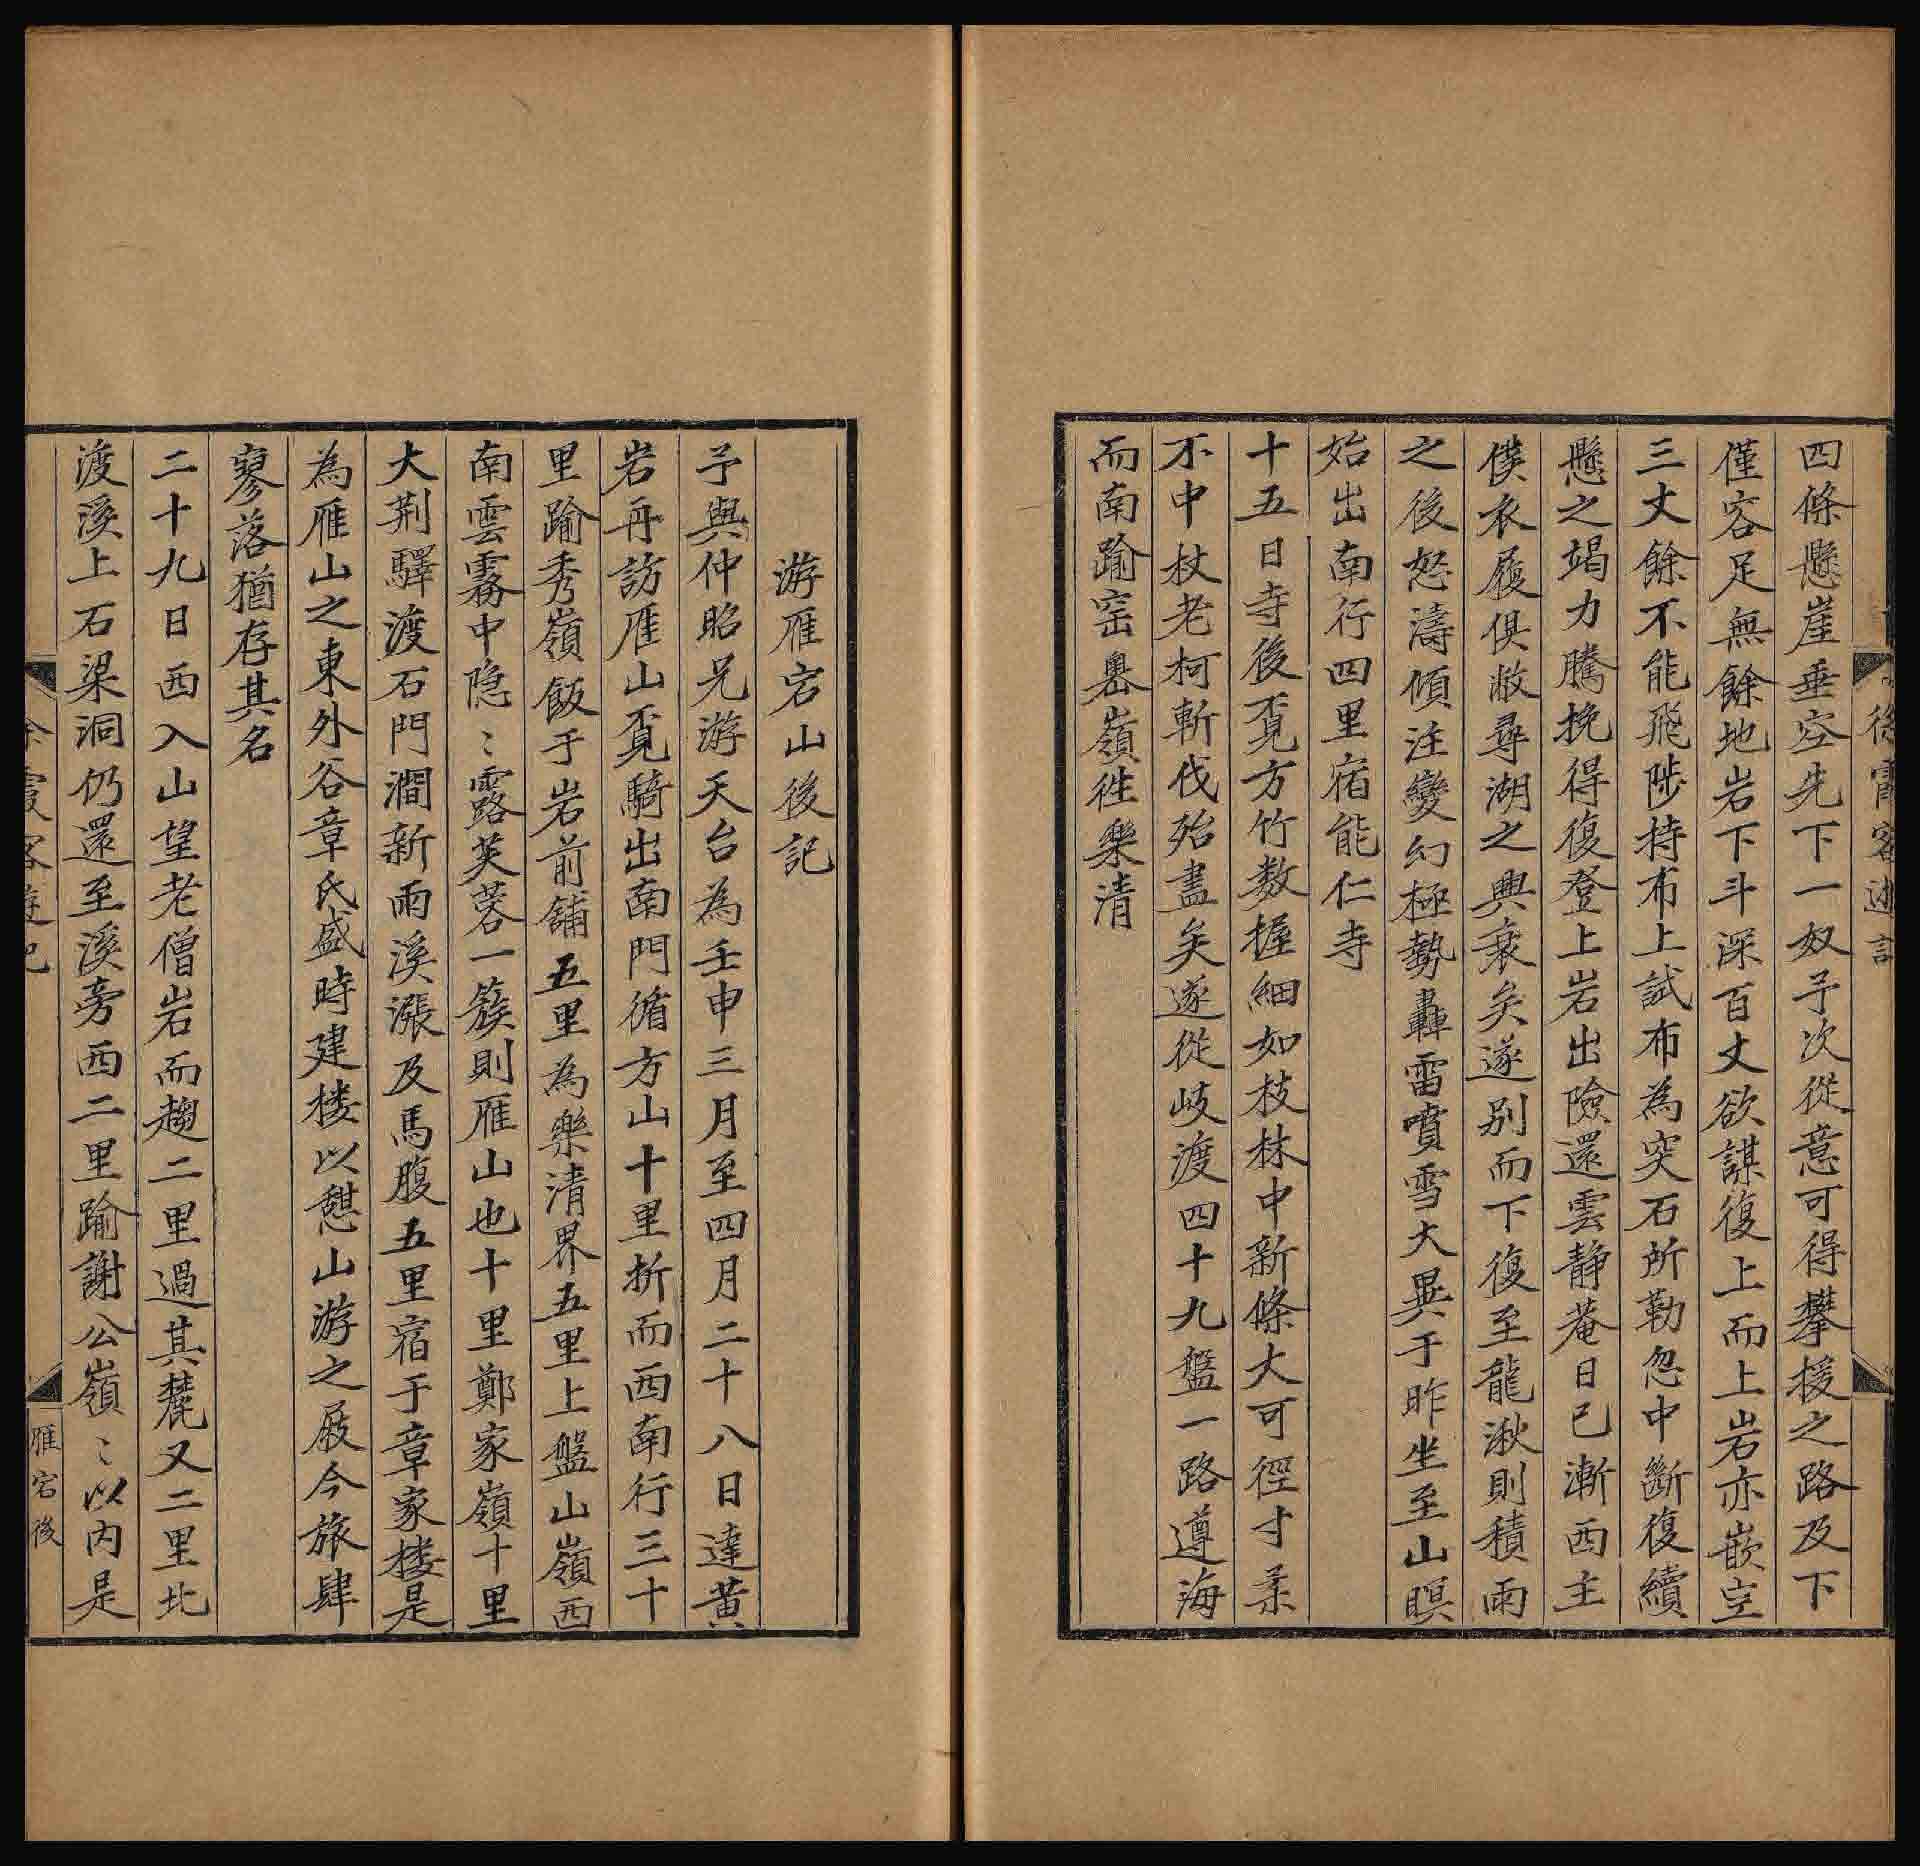 四條懸崖垂空先下一奴予次從意可得攀援之路及下
僅容足無餘地岩下斗深百丈欲謀復上而上岩亦嵌空
三丈餘不能飛陟持布上試布為突石所勒忽中斷復續
懸之竭力騰挽得復登上岩出險還雲靜菴日已漸西主
僕衣履俱敝尋湖之興衰矣遂別而下復至龍湫則積雨
之後怒濤傾注變幻極勢轟雷噴雪大異于昨坐至山暝
始出南行四里宿能仁寺
十五日寺後覓方竹数握細如枝林中新條大可徑寸柔
不中杖老柯斬伐殆盡矣遂從岐渡四十九盤一路遵海
而南踰窑嶴嶺徃樂清
游雁宕山後記
予與仲昭兄游天台為壬申三月至四月二十八日達黃
岩再訪雁山覓騎出南門循方山十里折而西南行三十
里踰秀嶺飯于岩前舖五里為樂清界五里上盤山嶺西
南雲霧中隐〻露芙蓉一簇則雁山也十里鄭家嶺十里
大荆驛渡石門澗新雨溪漲及馬腹五里宿于章家楼是
為雁山之東外谷章氏盛時建楼以憇山游之屐今旅肆
寥落猶存其名
二十九日西入山望老僧岩而趨二里過其麓又二里北
渡溪上石梁洞仍還至溪旁西二里踰謝公嶺〻以内是
雁宕後